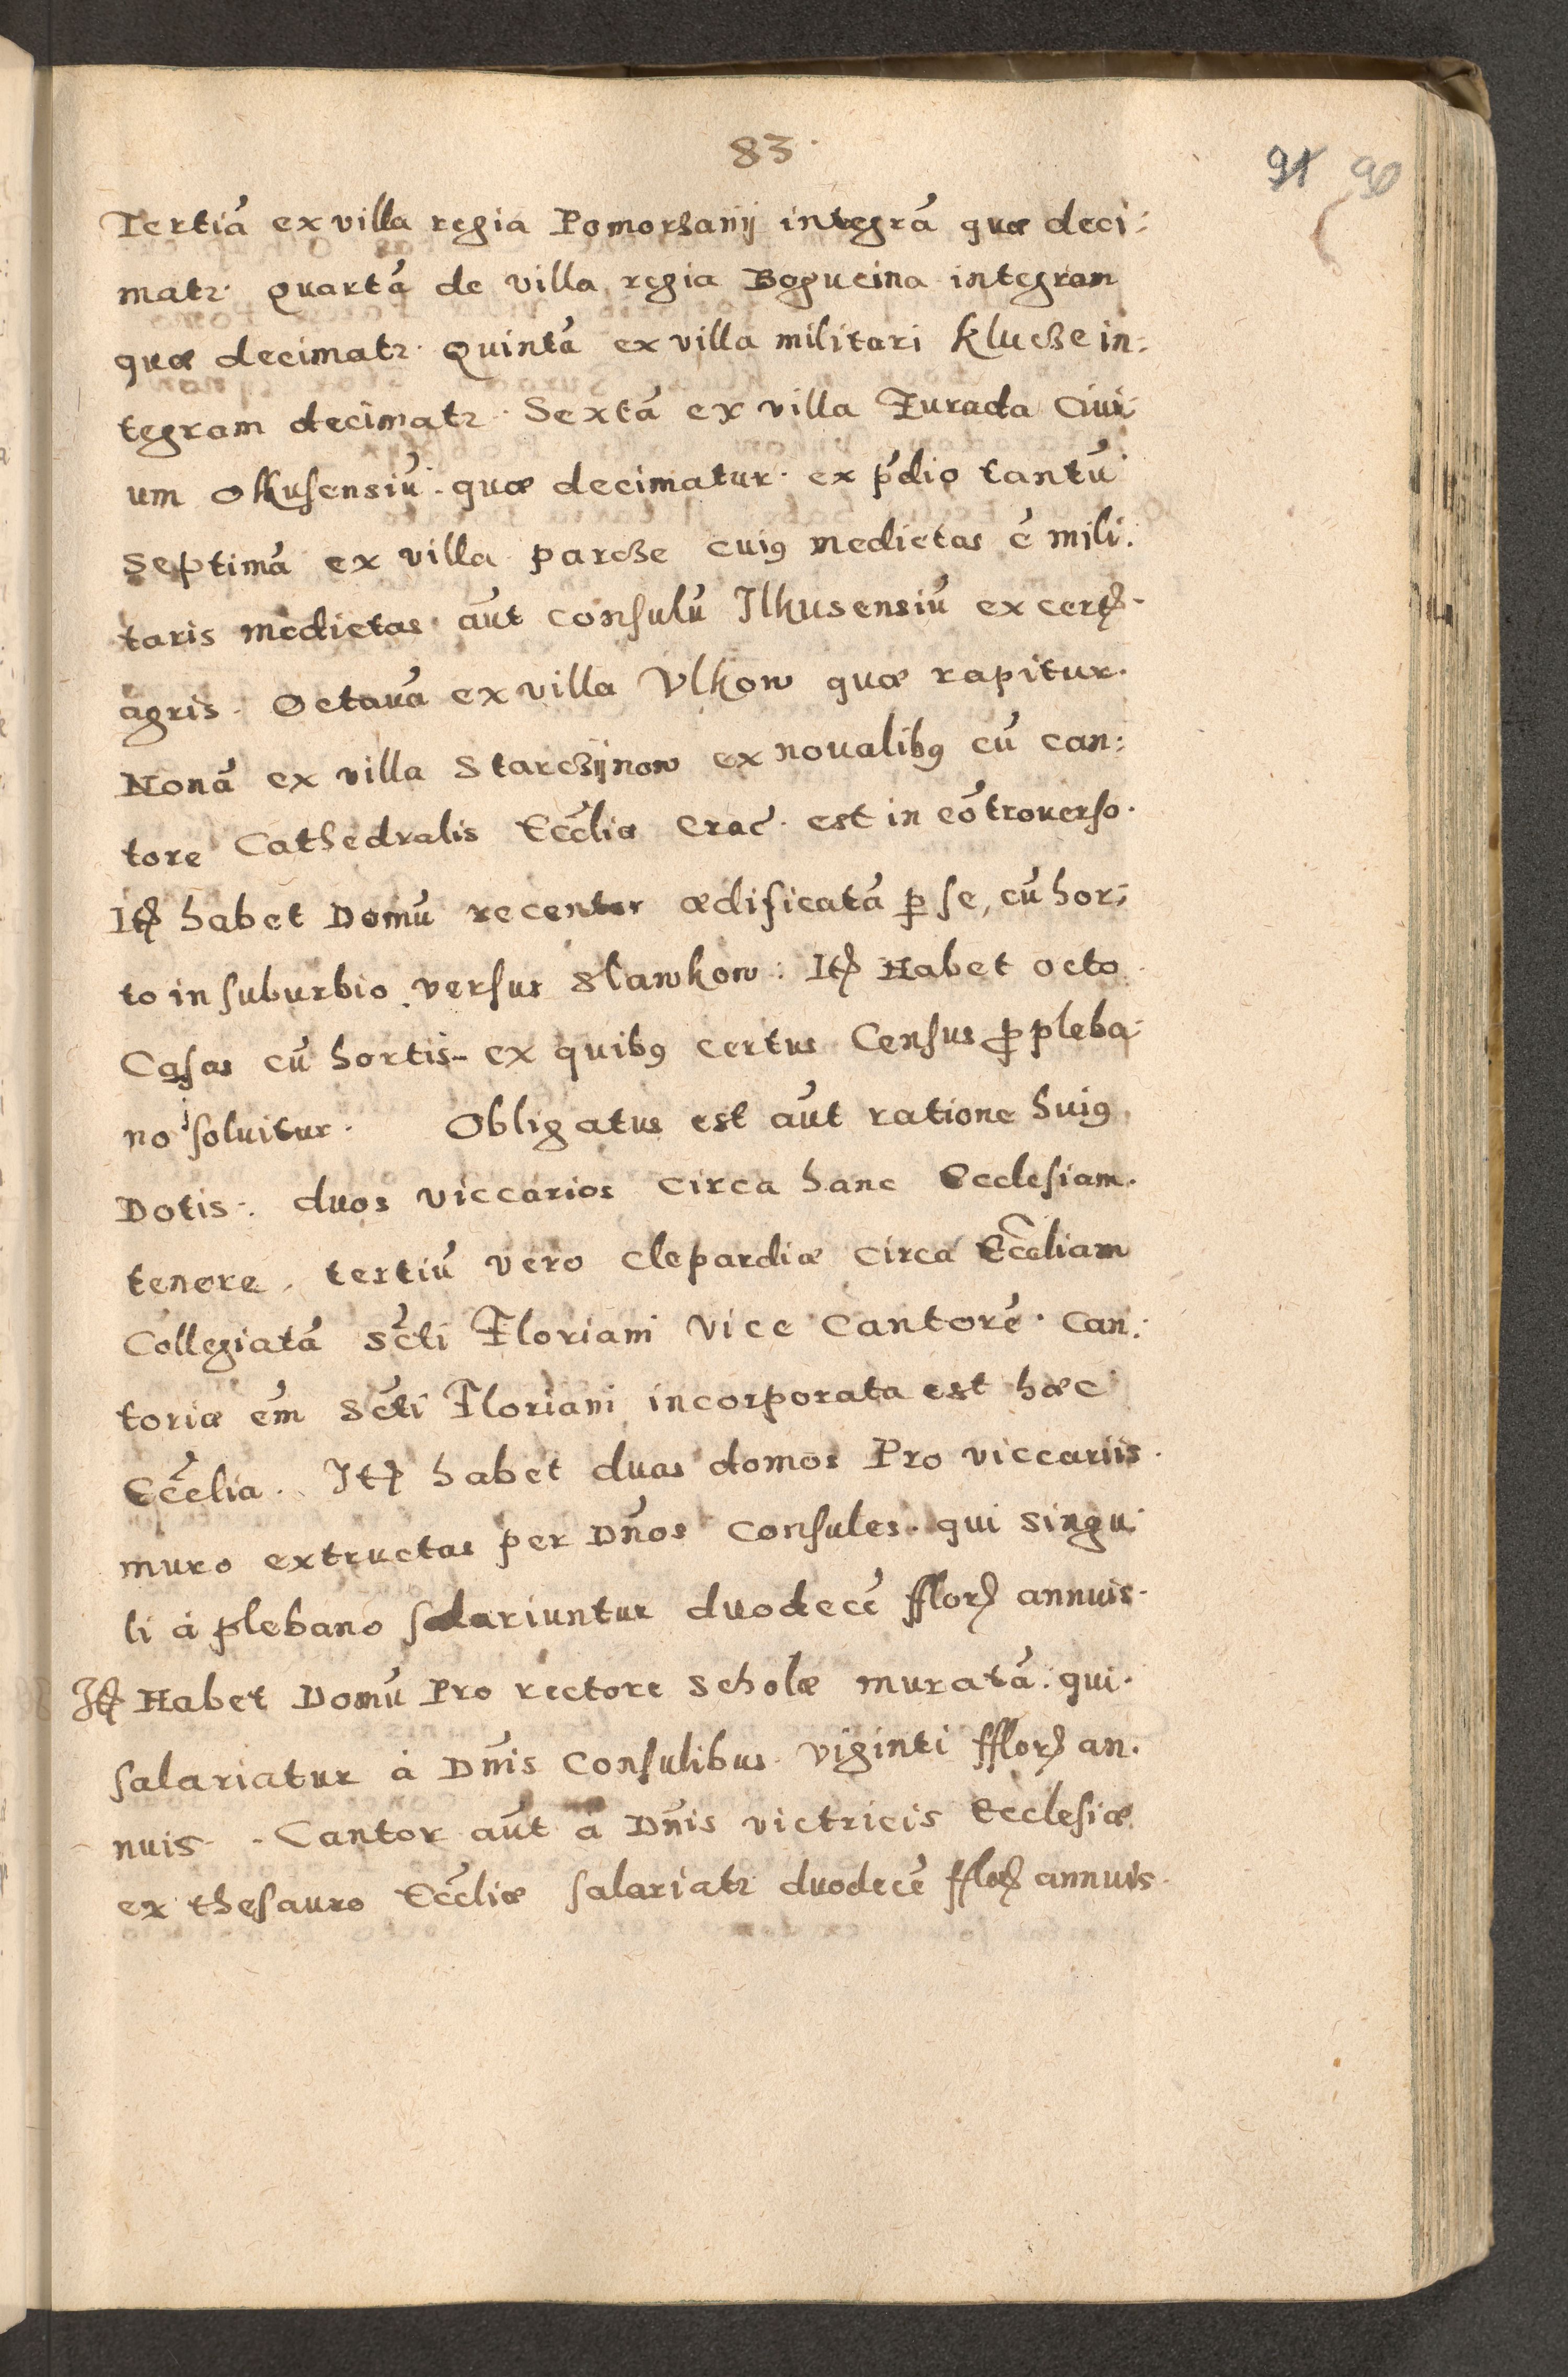 83
91 90
Tertiā ex villa regia Pomorzanij integrā quæ deci:
matr. Quartā de villa regia Bogucina integram
quæ decimatr. Quintā ex villa militari Klucze in:
tegram decimatr. Sextā ex villa Zurada Ciui:
um Olkusensiū. quæ decimatur. ex p̄dio tantū
Septimā ex villa parcze cuiꝯ medietas ē mili:
taris medietas aūt Consulū Ilkusensiū ex certꝭ.
agris. Octauā ex villa Vlkow quæ rapitur.
Nonā ex villa Starczijnow ex noualibꝯ cū can:
tore Cathedralis Eccl̄iæ Crac̄. est in cōtrouerso.
Itꝭ habet Domū recenter ædificatā ꝑ se, cū hor:
to in suburbio versus Slawkow: Itꝭ Habet octo
Casas cū hortis. ex quibꝯ certus Census ꝓ pleba:
no soluitur. Obligatus est aūt ratione huiꝯ
Dotis. duos viccarios circa hanc Ecclesiam.
tenere. tertiū vero Clepardiæ circa Ecc̄eliam
Collegiatā Sc̄ti Floriani Vice Cantorē. Can:
toriæ em̄ Sc̄ti Floriani incorporata est hæc
Ecc̄elia. Itꝭ habet duas domos Pro viccariis.
muro extructas per Dn̄os Consules. qui singu:
li à plebano salariuntur duodecē fflorꝭ annuis.
Itꝭ Habet Domū Pro rectore Scholæ muratā. qui.
salariatur à Dn̄is Consulibus. viginti fflorꝭ an:
nuis. Cantor aūt à Dn̄is victricis Ecclesiæ
ex thesauro Eccl̄iæ salariatr duodecē fflorꝭ annuis.